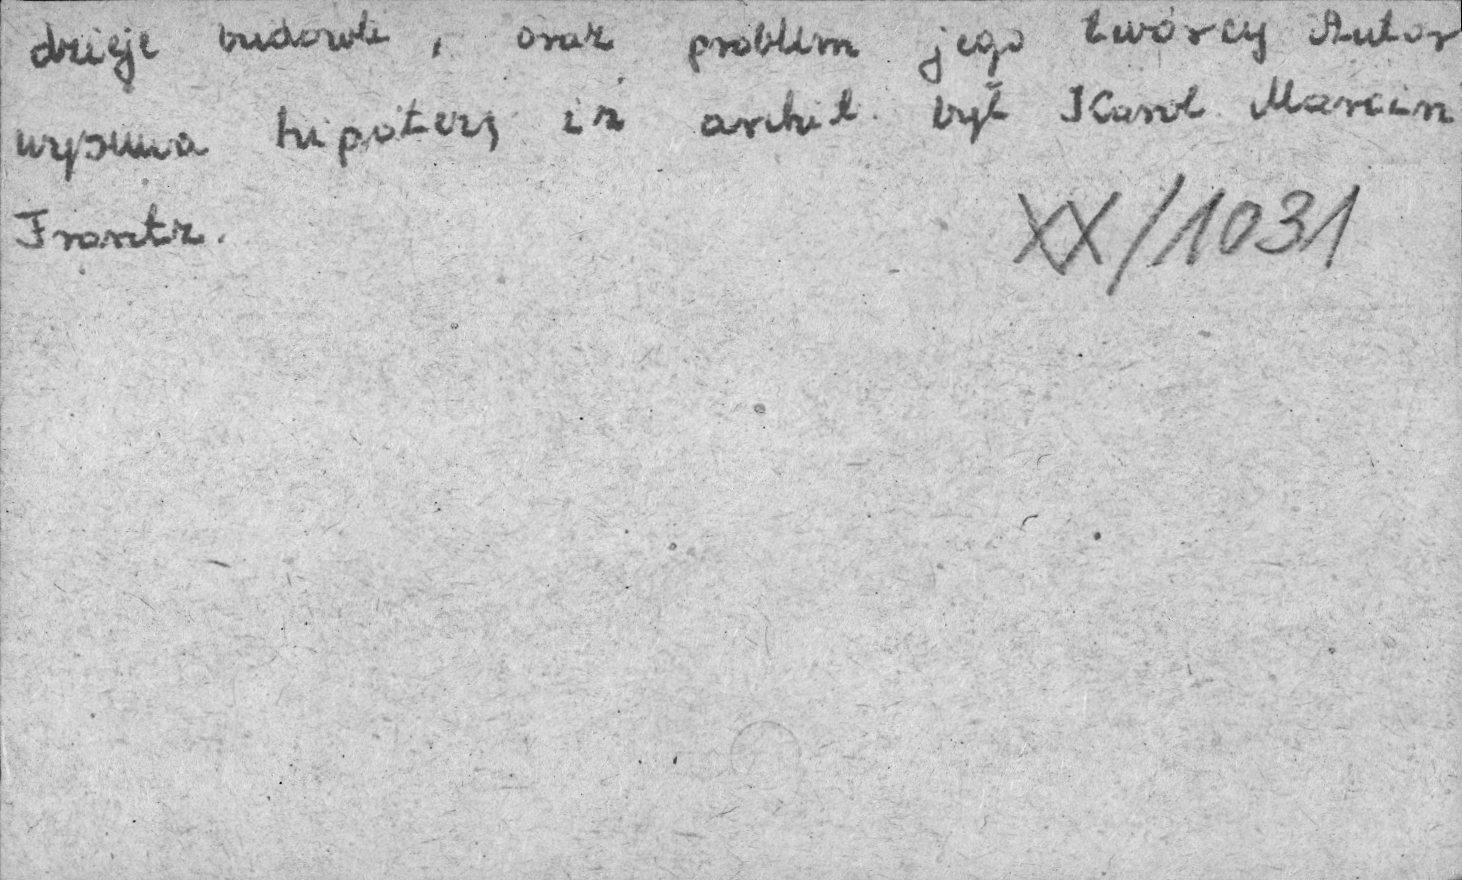 dzieje budowli, oraz problem jego twórcy Autor
wysuwa hipotezę iż archit. był Karol Marcin
Frantz.
XX/1031